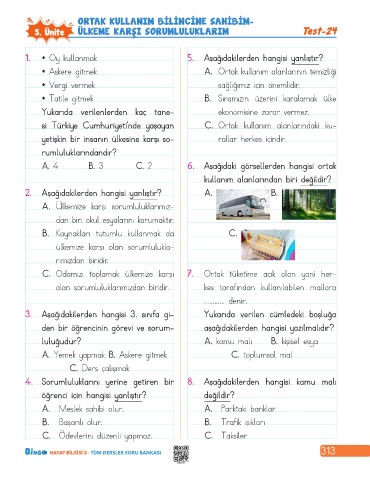 ORTAK KULLANIM BİLİNCİNE SAHİBİM-
5. Ünite ÜLKEME KARŞI SORUMLULUKLARIM Test-24
1. • Oy kullanmak
• Askere gitmek
• Vergi vermek
• Tatile gitmek
Yukarıda verilenlerden kaç tane-
si Türkiye Cumhuriyeti'nde yaşayan
yetişkin bir insanın ülkesine karşı so-
rumluluklarındandır?
A. 4 B. 3 C. 2
2. Aşağıdakilerden hangisi yanlıştır?
A. Ülkemize karşı sorumluluklarımız-
dan biri okul eşyalarını korumaktır.
B. Kaynakları tutumlu kullanmak da
ülkemize karşı olan sorumlulukla-
rımızdan biridir.
C. Odamızı toplamak ülkemize karşı
olan sorumluluklarımızdan biridir.
3. Aşağıdakilerden hangisi 3. sınıfa gi-
den bir öğrencinin görevi ve sorum-
luluğudur?
A. Yemek yapmak B. Askere gitmek
C. Ders çalışmak
4. Sorumluluklarını yerine getiren bir
öğrenci için hangisi yanlıştır?
A. Meslek sahibi olur.
B. Başarılı olur.
C. Ödevlerini düzenli yapmaz.
5. Aşağıdakilerden hangisi yanlıştır?
A. Ortak kullanım alanlarının temizliği
sağlığımız için önemlidir.
B. Sıramızın üzerini karalamak ülke
ekonomisine zarar vermez.
C. Ortak kullanım alanlarındaki ku-
rallar herkes içindir.
6. Aşağıdaki görsellerden hangisi ortak
kullanım alanlarından biri değildir?
A. B.
C.
7. Ortak tüketime açık olan yani her-
kes tarafından kullanılabilen mallara
............ denir.
Yukarıda verilen cümledeki boşluğa
aşağıdakilerden hangisi yazılmalıdır?
A. kamu malı B. kişisel eşya
C. toplumsal mal
8. Aşağıdakilerden hangisi kamu malı
değildir?
A. Parktaki banklar
B. Trafik ışıkları
C. Taksiler
BinGo HAYAT BİLGİSİ 3 - TÜM DERSLER SORU BANKASI 313